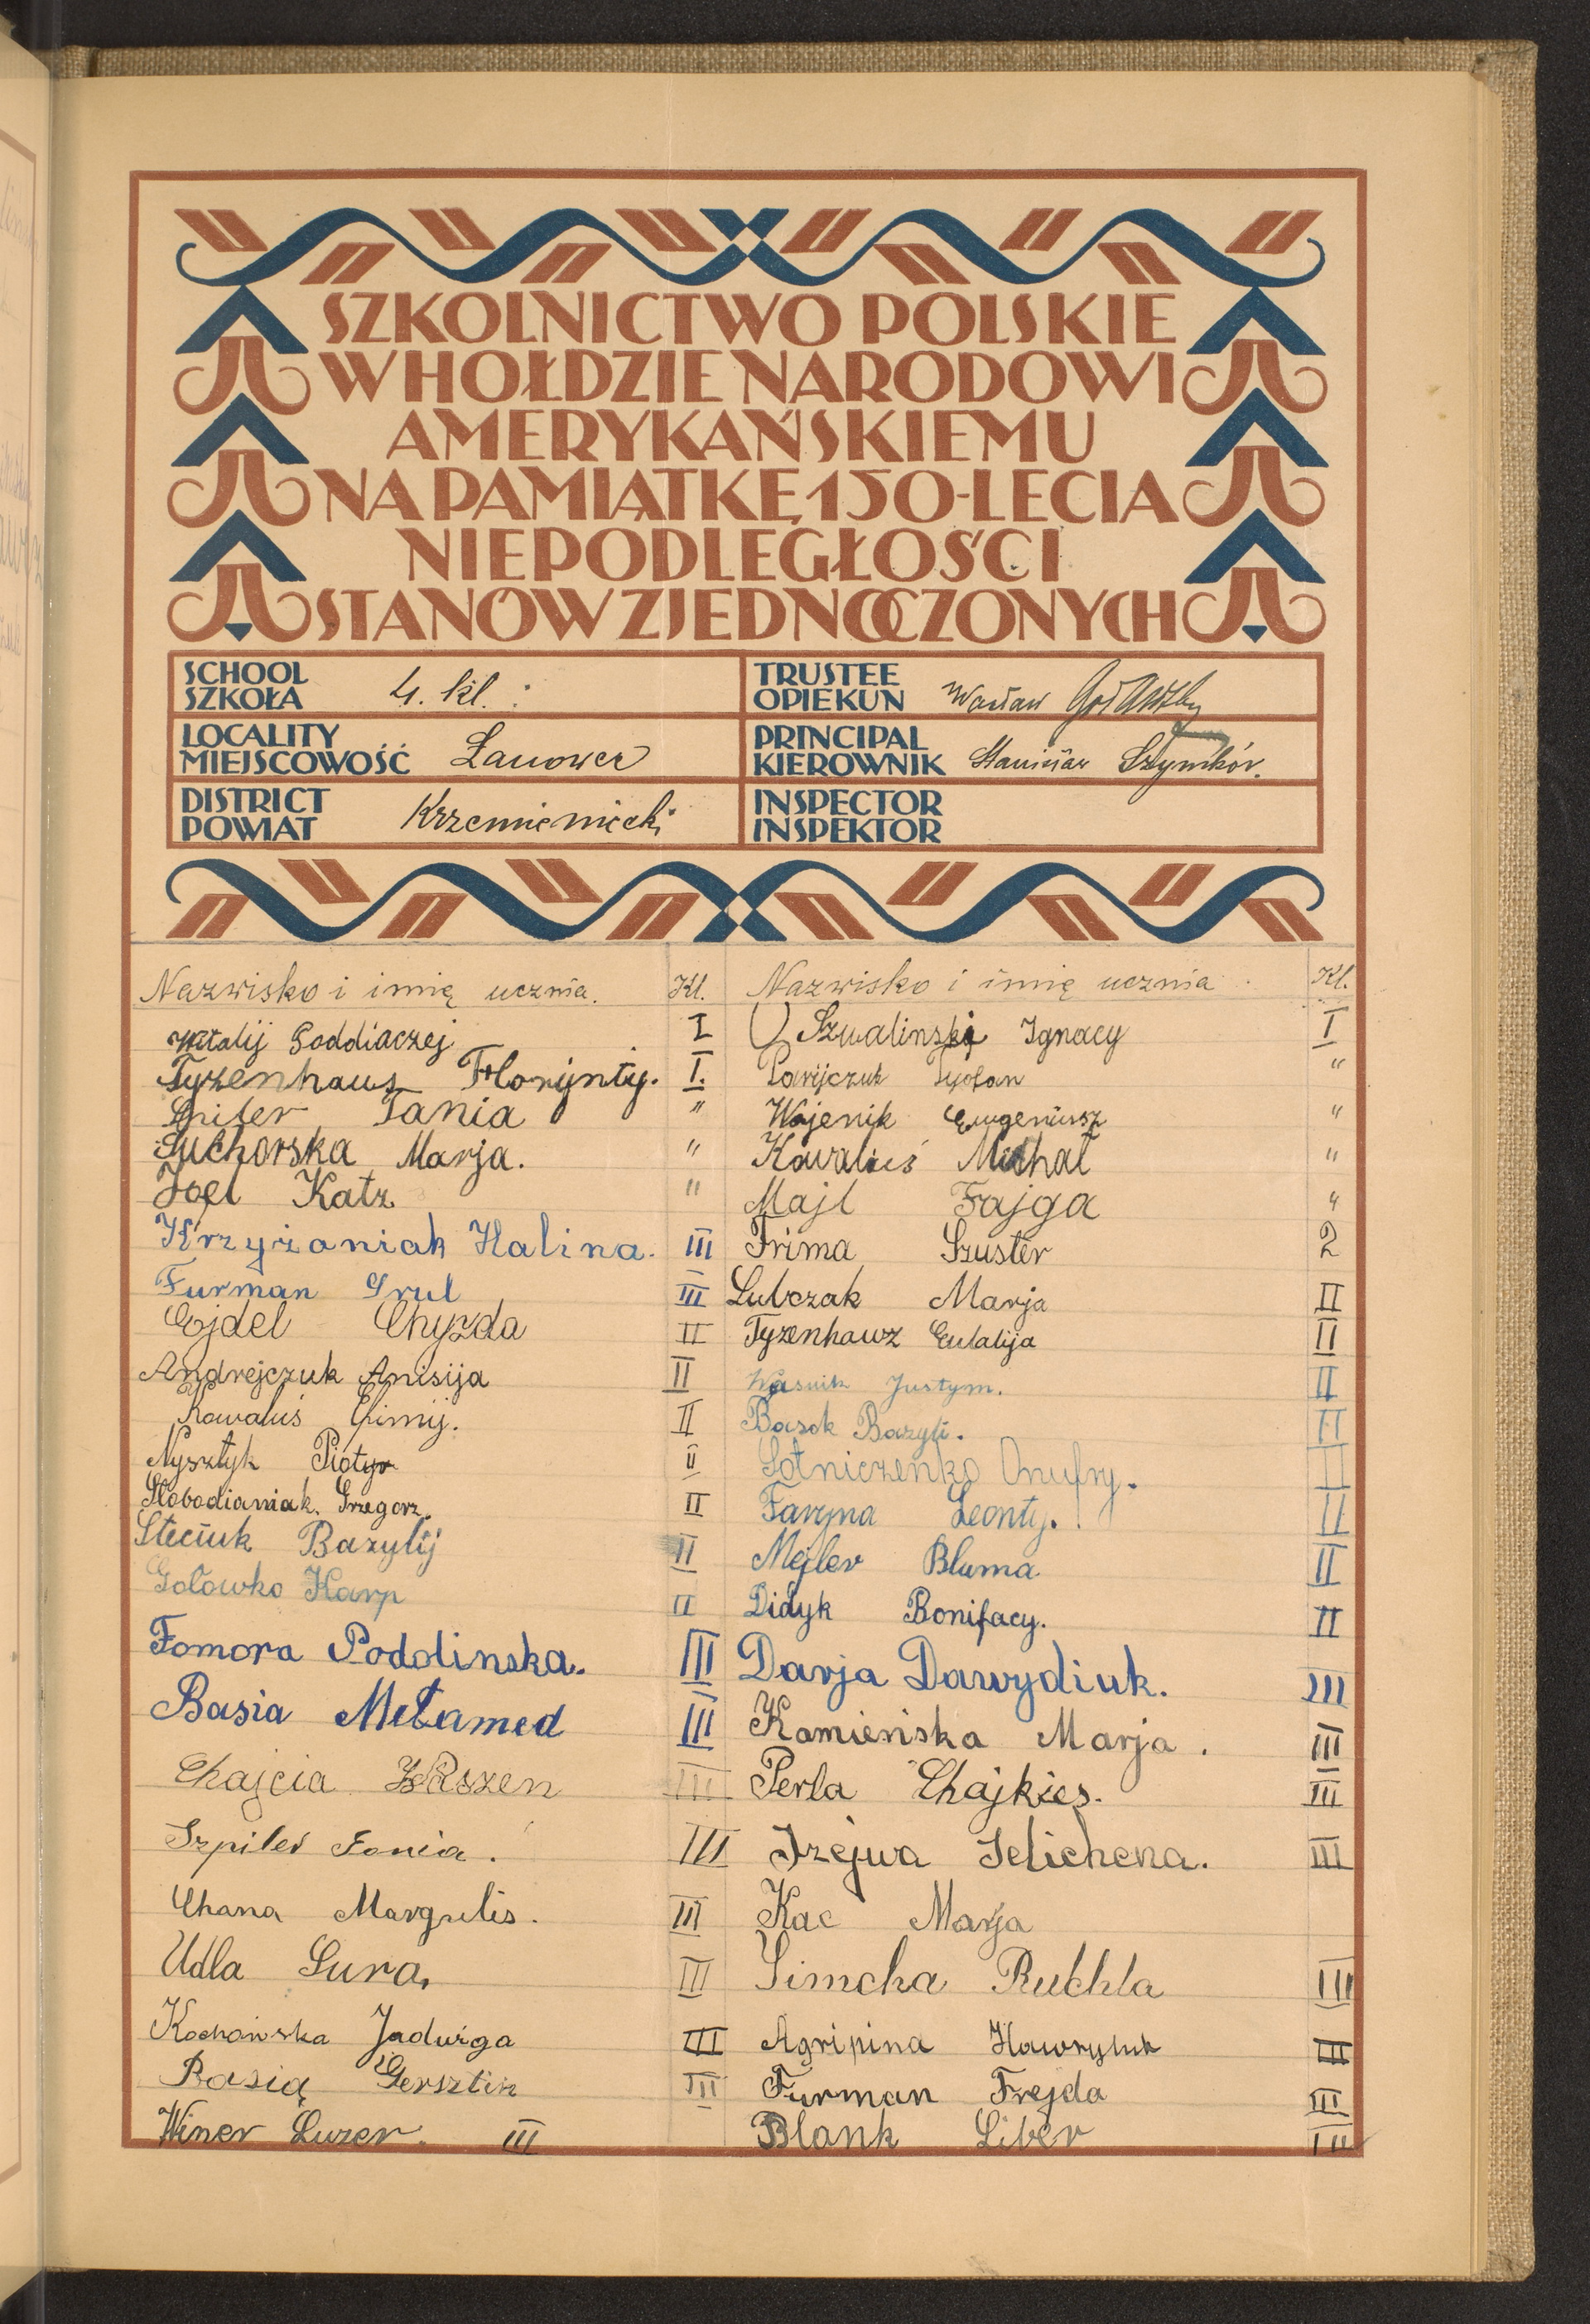 SZKOLNICTWO POLSKIE
W HOŁDZIE NARODOWI
AMERYKAŃSKIEMU
NA PAMIĄTKĘ 150-LECIA
NIEPODLEGŁOŚCI
STANÓW ZJEDNOCZONYCH
SCHOOL
SZKOŁA 4. kl.
TRUSTEE
OPIEKUN Wacław
LOCALITY
MIEJSCOWOŚĆ Łanowce
PRINCIPAL
KIEROWNIK Stanisław Szymkór.
DISTRICT
POWIAT Krzemieniecki
INSPECTOR
INSPEKTOR
Nazwisko i imię ucznia. Kl.
Witalij Poddiaczej I
Tyzenhauz Florynty. I.
Spiler Tania "
Suchorska Marja. "
Joel Katz "
Krzyżaniak Halina. III
Furman Srul III
Ejdel Chyzda II
Andrejczuk Anisija II
Kowaluś Efimij. II
Nysztyk Piotyr II
Słobodianiak. Grzegorz. II
Steciuk Bazylij II
Gołowko Karp II
Fomora Podolinska. III
Basia Mełamed III
Chajcia III
Szpiler Fania. III
Chana Margulis. III
Udla Sura. III
Kochańska Jadwiga III
Basia Gersztin III
Winer Luzer. III
Nazwisko i imię ucznia. Kl.
Szwalinski Ignacy I
Pawyczuk Tyofan "
Wojenik Eugeniusz "
Kowaluś Michał "
Majl Fajga "
Frima Szuster 2
Lubczak Marja II
Tyzenhawz Eulalija II
Wasnik Justym. II
Basok Bazyli. II
Sotniczenko Onufry. II
Faryna Leonty. II
Mejler Bluma II
Didyk Bonifacy. II
Darja Dawydiuk. III
Kamieńska Marja. III
Perla Chajkies. III
Szejwa Selichena. III
Kac Marja
Simcha Ruchla III
Agripina Hawryluk III
Furman Frejda III
Blank Liber III